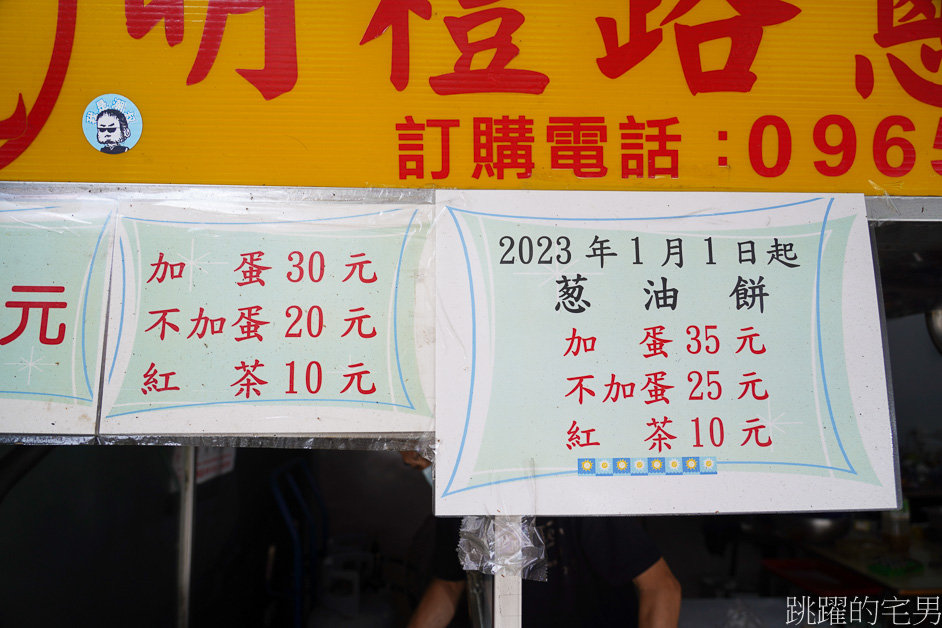 明橙路
訂購電話：0965
元
加 蛋 30 元
不加蛋 20 元
紅 茶 10 元
2023 年 1 月 1 日起
葱 油 餅
加 蛋 35 元
不加蛋 25 元
紅 茶 10 元
跳躍的宅男